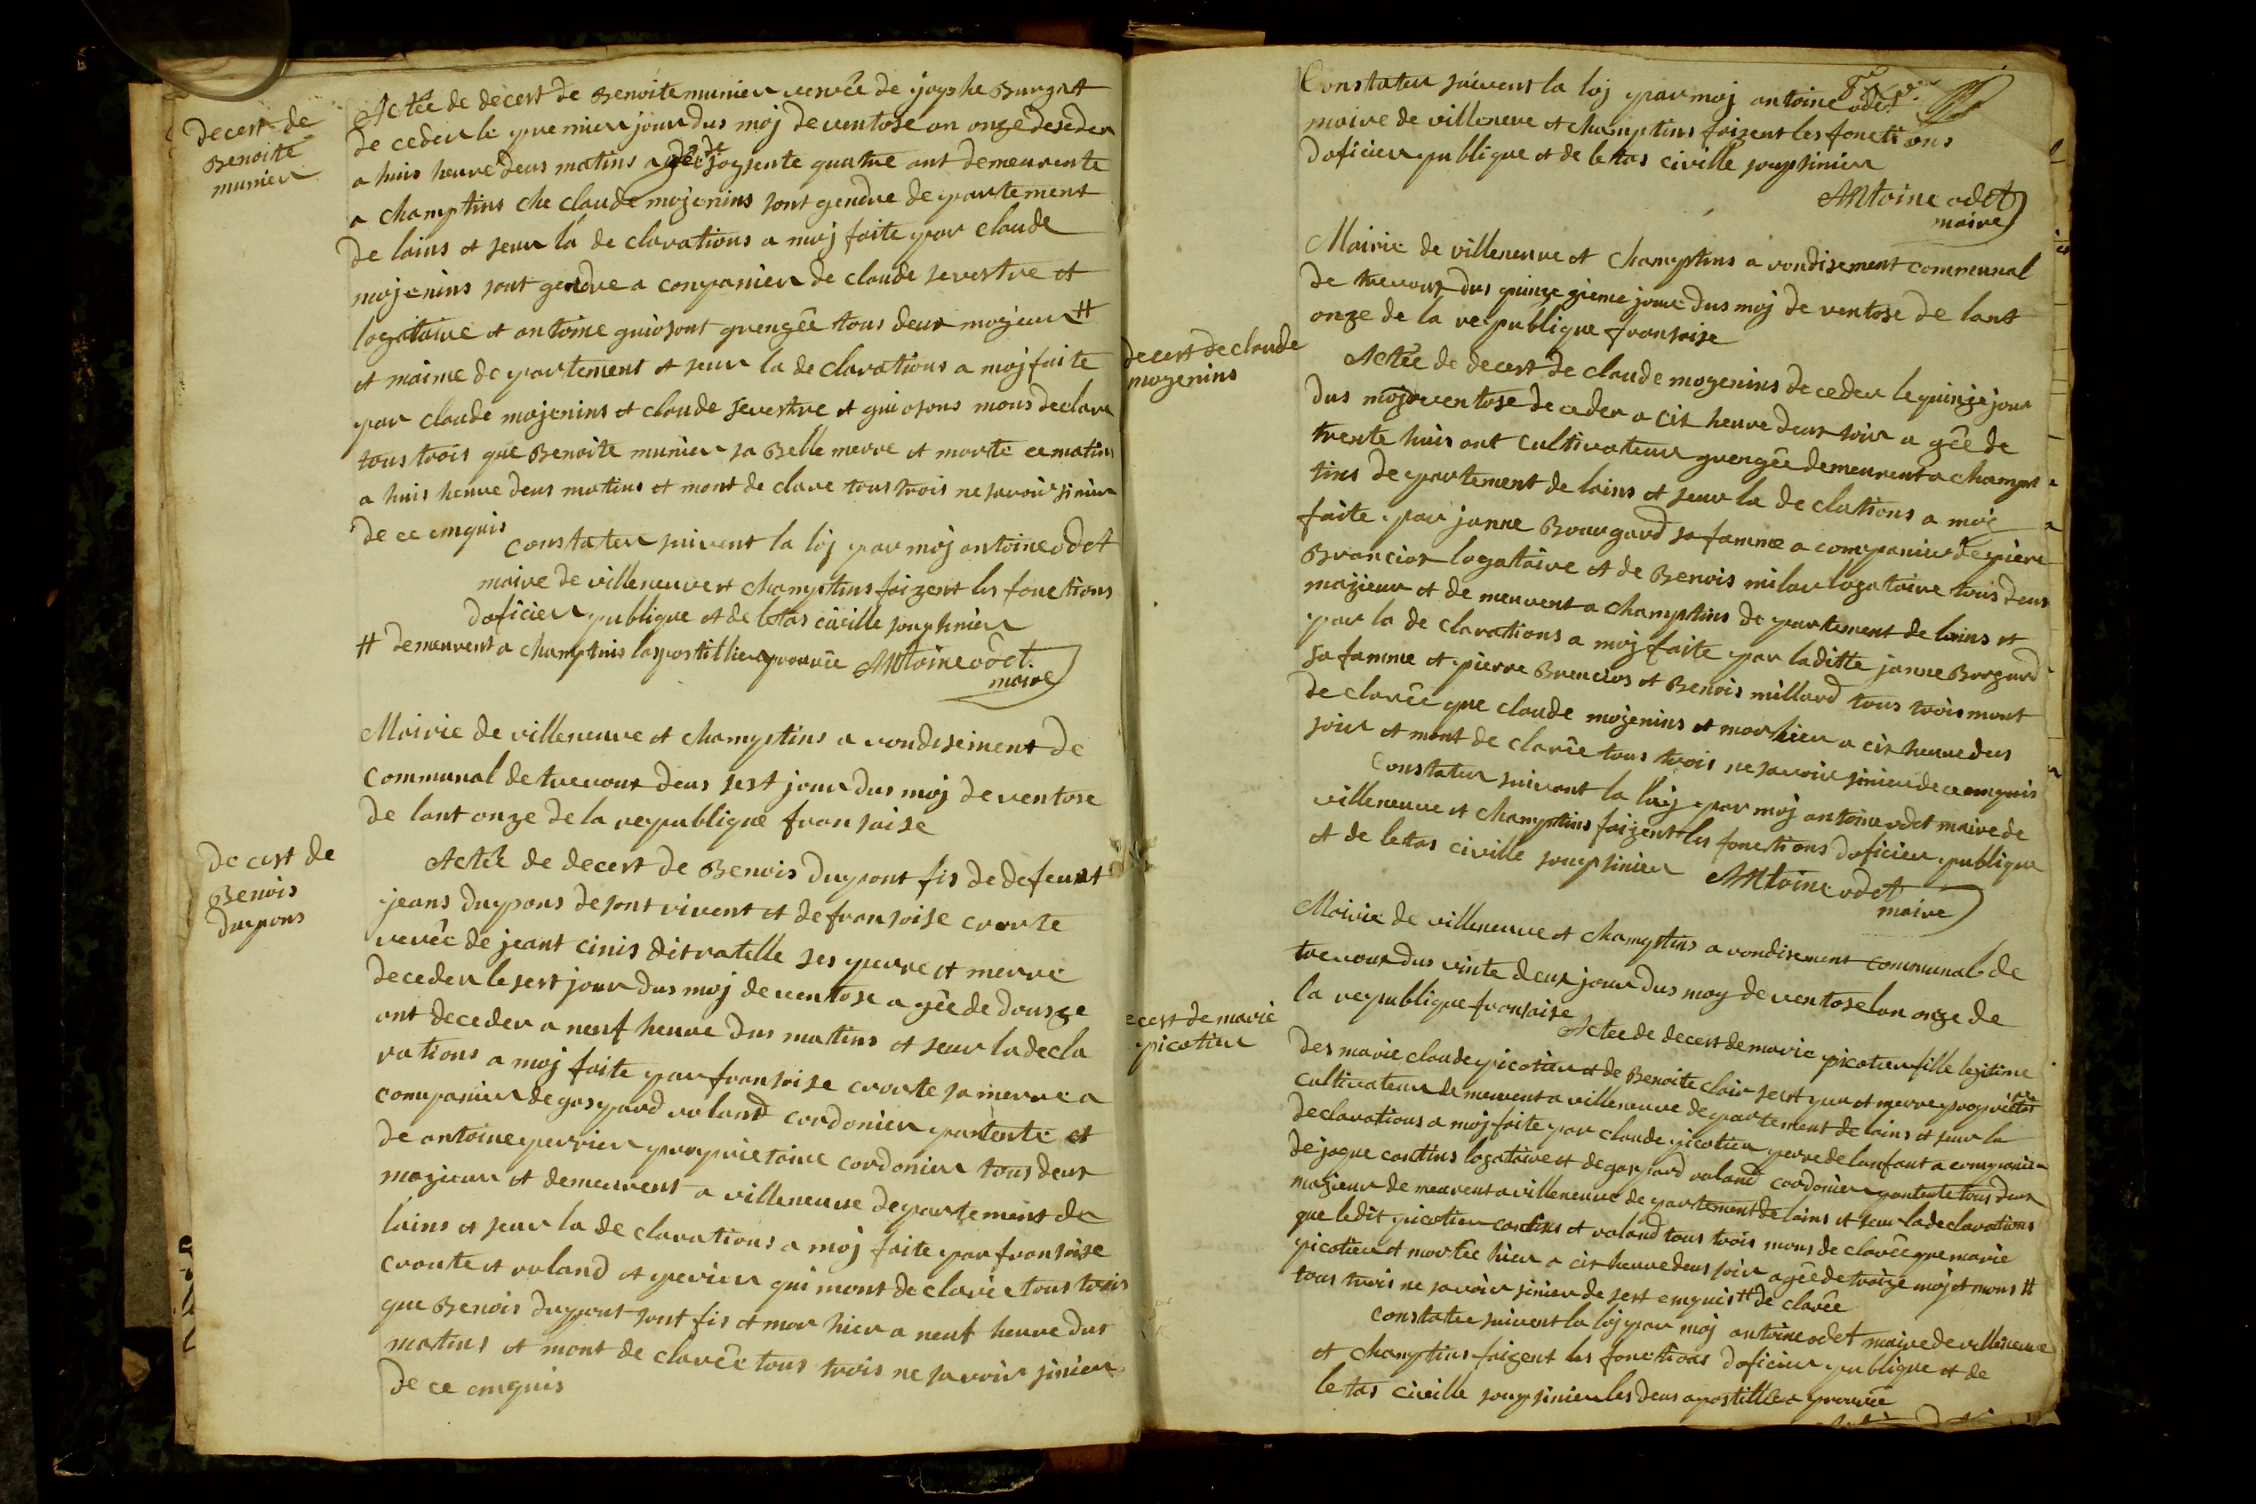 decest de
Benoite
munier
Actée de decest de Benoite munier vevée de josphe Burgat
de ceder le premier jour dus moj de ventose on onze deseder
a huis heure deus matins agée de soysente quatre ant demeurente
a champtins che claude mojenins sont gendre de partement
de lains et seur la de clarations a moj faite par claude
mojenins sont gendre a companier de claude sevestre et
logataire et antoine guiosont grengée tous deus mojeur #
et maime de partement et seur la de clarations a moj faite
par claude mojenins et claude sevestre et guiosons mons declare
tous trois que Benoite munier sa Belle merre et morte ce matins
a huis heure deus matins et mont de clare tous trois ne savoir sinier
de ce enquis
constater suivent la loj par moj antoine odet
maire de villeneuve et champtins faizent les fonctions
doficier publique et de letas civille soupsinier
# demeurent a champtins lapostillie aprouvée Antoine odet
maire
Mairie de villeneuve et champtins a rondisement de
communal de trevous deus sest jour dus moj de ventose
de lant onze de la republique fransaise
decest de
Benois
dupons
Actée de decest de Benois dupont fis de defeunt
jeans dupons de sont vivent et de fransoise croste
vevée de jeant cinis dit ratelle ses perre et merre
deceder le sest jour dus moj de ventose a gée de dousze
ant deceder a neuf heure dus matins et seur la decla
rations a moj faite par fransoise croste sa merre a
companier de gaspard roland cordonier pantente et
de antoine perrier proprietaire cordonier tous deus
mazieur et demeurent a villeneuve departement de
lains et seur la de clarations a moj faite par fransoise
croute et roland et perier qui mont de clarée tous trois
que Benois dupont sont fis et mor hier a neuf heure dus
matins et mont de clarée tous trois ne savoir sinier
de ce enquis
Constater suivent la loj par moj antoine odet
maire de villeneve et champtins faizent les fonctions
doficier publique et de letas civille soupsinier
Antoine odet
maire
Mairie de villeneuve et champtins a rondisement communal
de trevous dus quinze zieme jour dus moj de ventose de lant
onze de la republique fransaise
decest de claude
mozenins
Actée de decest de claude mozenins de ceder le quinze jour
dus moj deventose de ceder a cis heure deus soir a gée de
trente huis ant cultivateur grengée demeurent a champ
tins de partement de lains et seur la de clations a moj
faite par janne Bourgard sa famme a companier de piere
Brancios logataire et de Benois milar logataire tous deus
mazieur et de meurent a champtins de partement de lains et
par la de clarations a moj faite par laditte janne Borgard
sa famme et pierre Brencios et Benois millard tous trois mont
de clarée que claude mojenins et mor hier a cis heure deus
soir et mont de clarée tous trois ne savoir sinier de ce enquis
Constater suivant la loij par moj antoine odet maire de
villeneuve et champtins faizent les fonctions doficier publique
et de letas civille soupsinier Antoine odet
maire
Mairie de villeneuve et champtins a rondisement communal de
trevous dus vinte deux jour dus moy de ventose lan onze de
la republique fransaise
ecest de marie
picotier
Actee de decest de marie picotier fille legitime
des marie claude picotier et de Benoite clair sest per et merre proprietere
cultivateur de meurent a villeneuve de partement de lains et seur la
declarations a moj faite par claude picotier perre de lanfant a companier
de jaque cantins logataire et de gaspard roland cordonier pantente tous deus
mazieur de meurent a villeneuve de partement de lains et seur la declarations
que ledit picotier cantins et roland tous trois mons de clarée que marie
picotier et mortée hier a cis heure deus soir agée de traize moj et mons #
tous trois ne savoir sinier de sest enquis # de clarée
constater suivent la loj par moj antoine odet maire de villeneuve
et champtins faizent les fonctions doficier publique et de
letas civille soupsinier les deus apostillée a prouvée